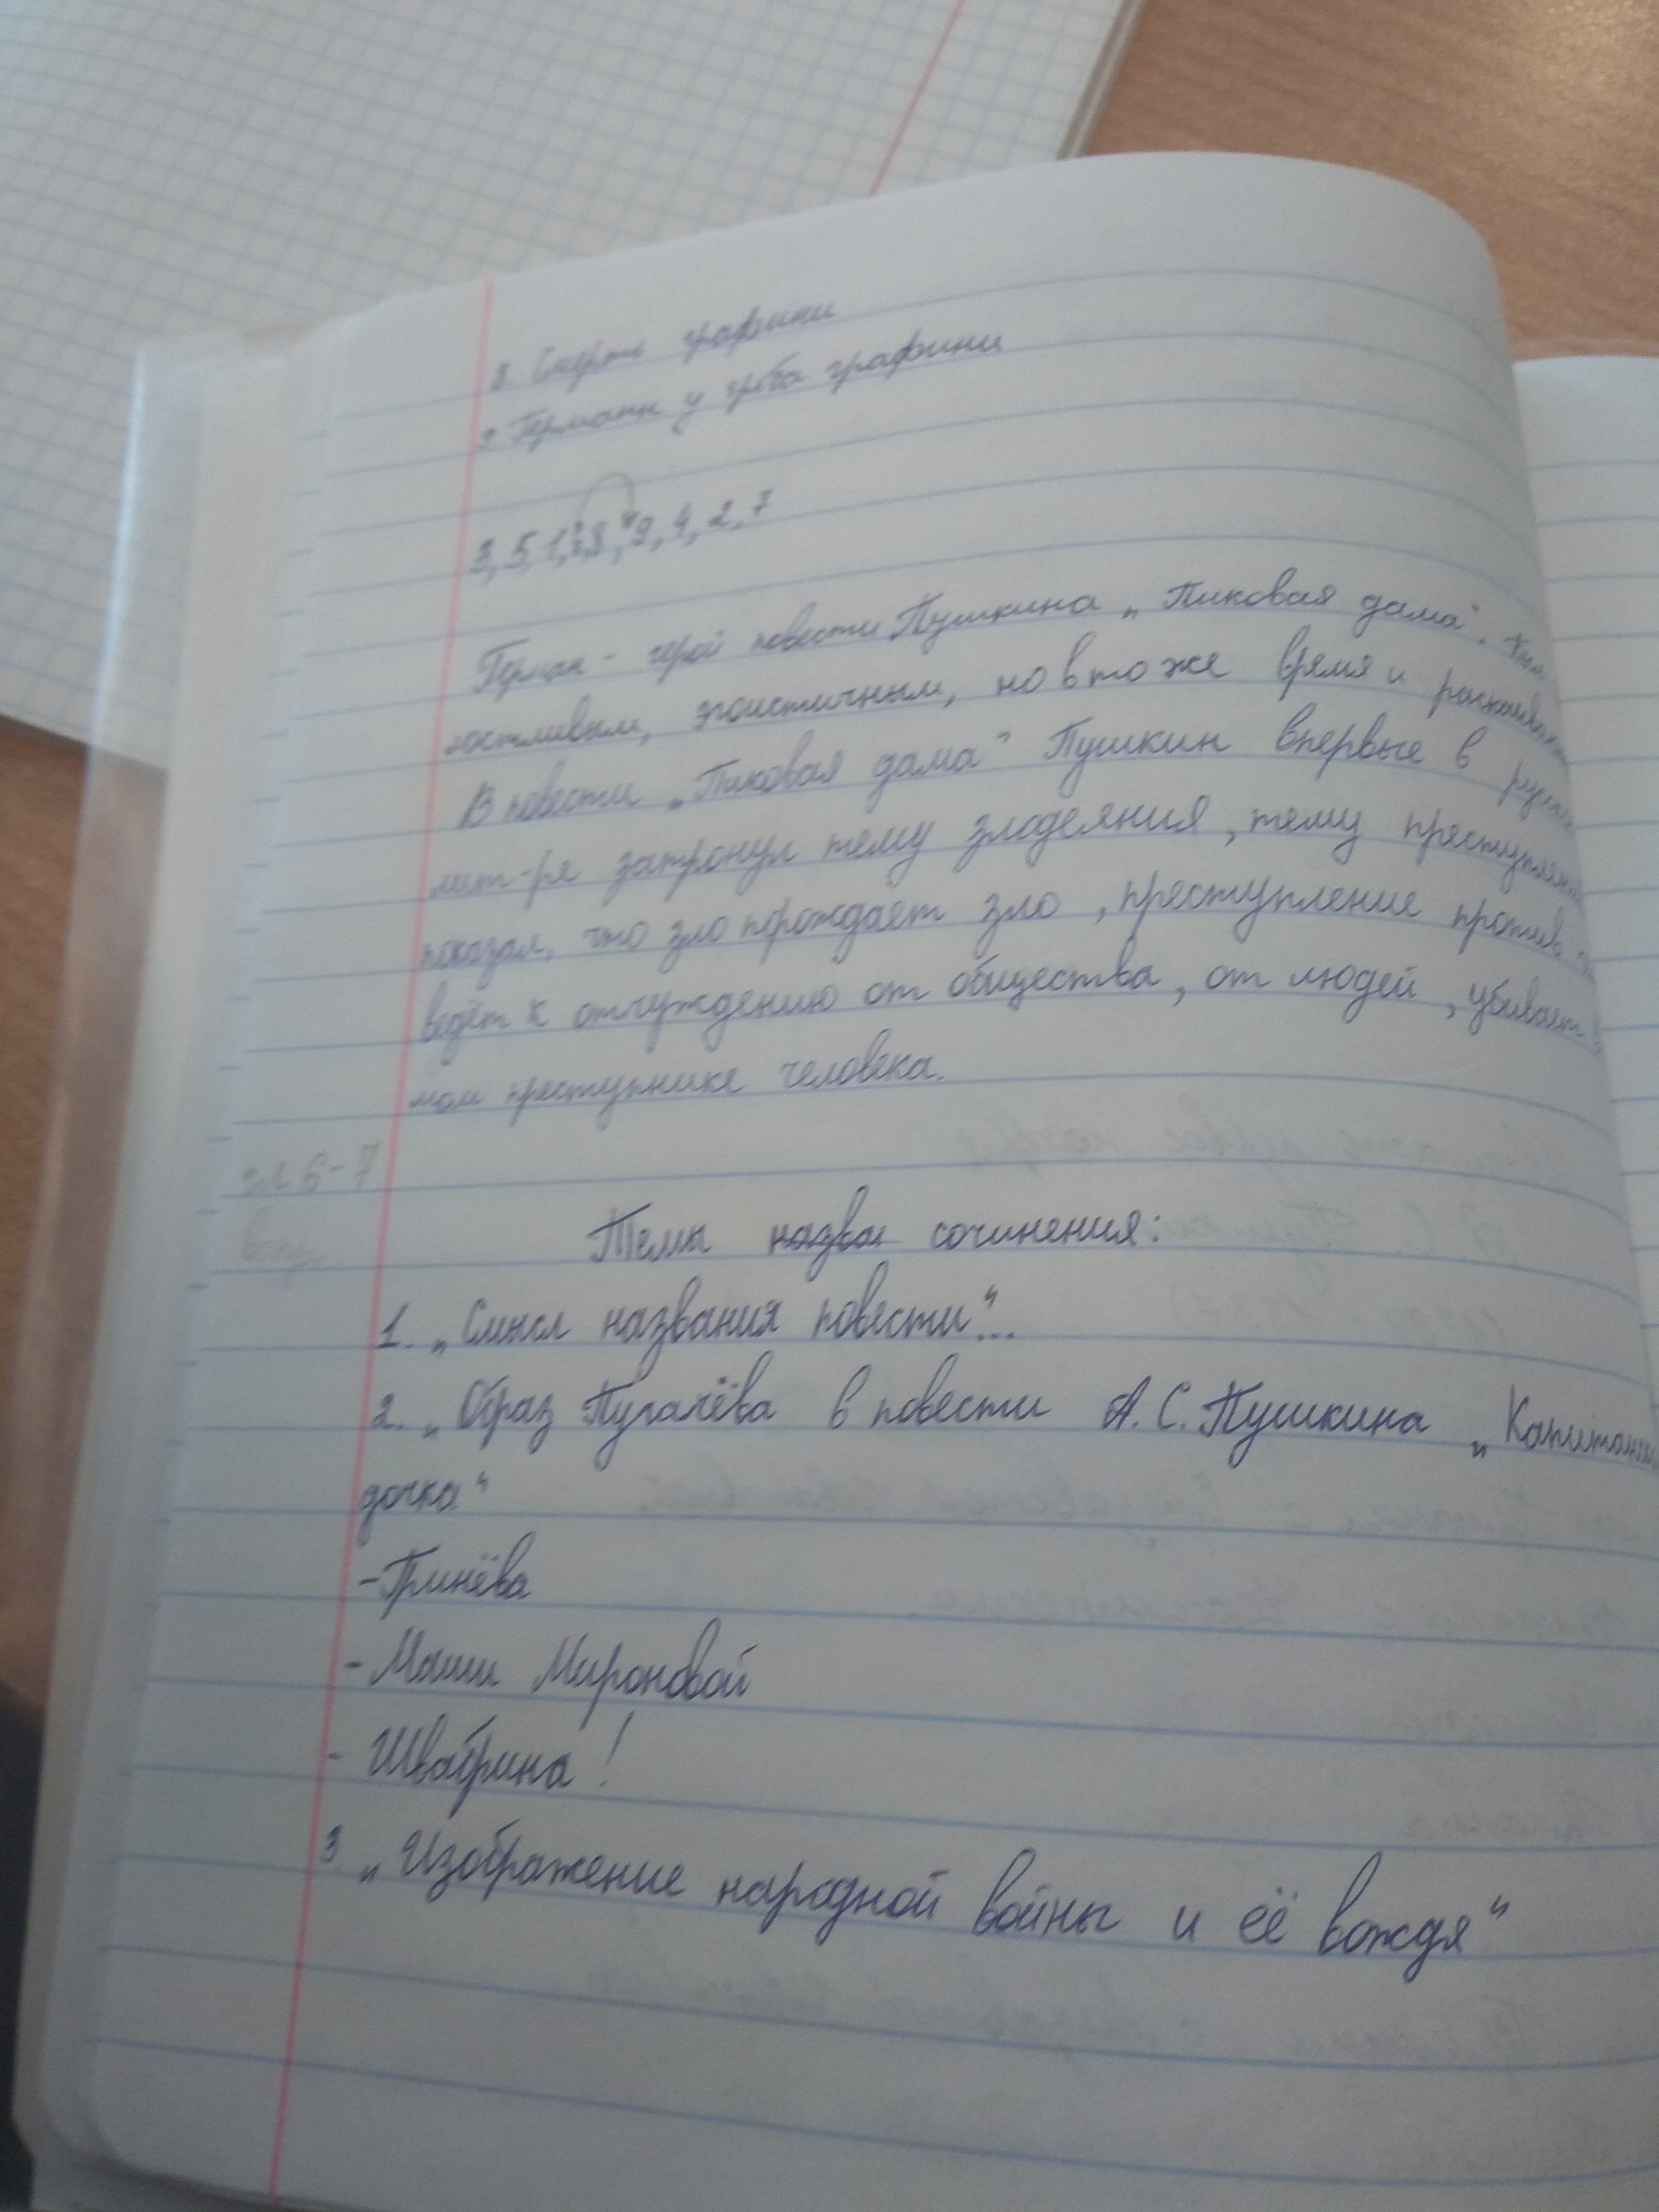 8. Смерть графини
9. Германн у гроба графини
3, 5, 1, 8, 9, 4, 2, 7
Герман - герой повести Пушкина „Пиковая дама".
эгоистичным, но в то же время и
В повести „Пиковая дама" Пушкин впервые в
лит-ре затронул тему злодеяния, тему
показал, что зло порождает зло, преступление против
ведёт к отчуждению от общества, от людей, убивает
мом преступнике человека.
гл 6-7
вопр.
Темы назва сочинения:
1. „Смысл названия повести"...
2. „Образ Пугачёва в повести А.С. Пушкина „Капитанск
дочка"
- Гринёва
- Маши Мироновой
- Швабрина!
3 „Изображение народной войны и её вождя"